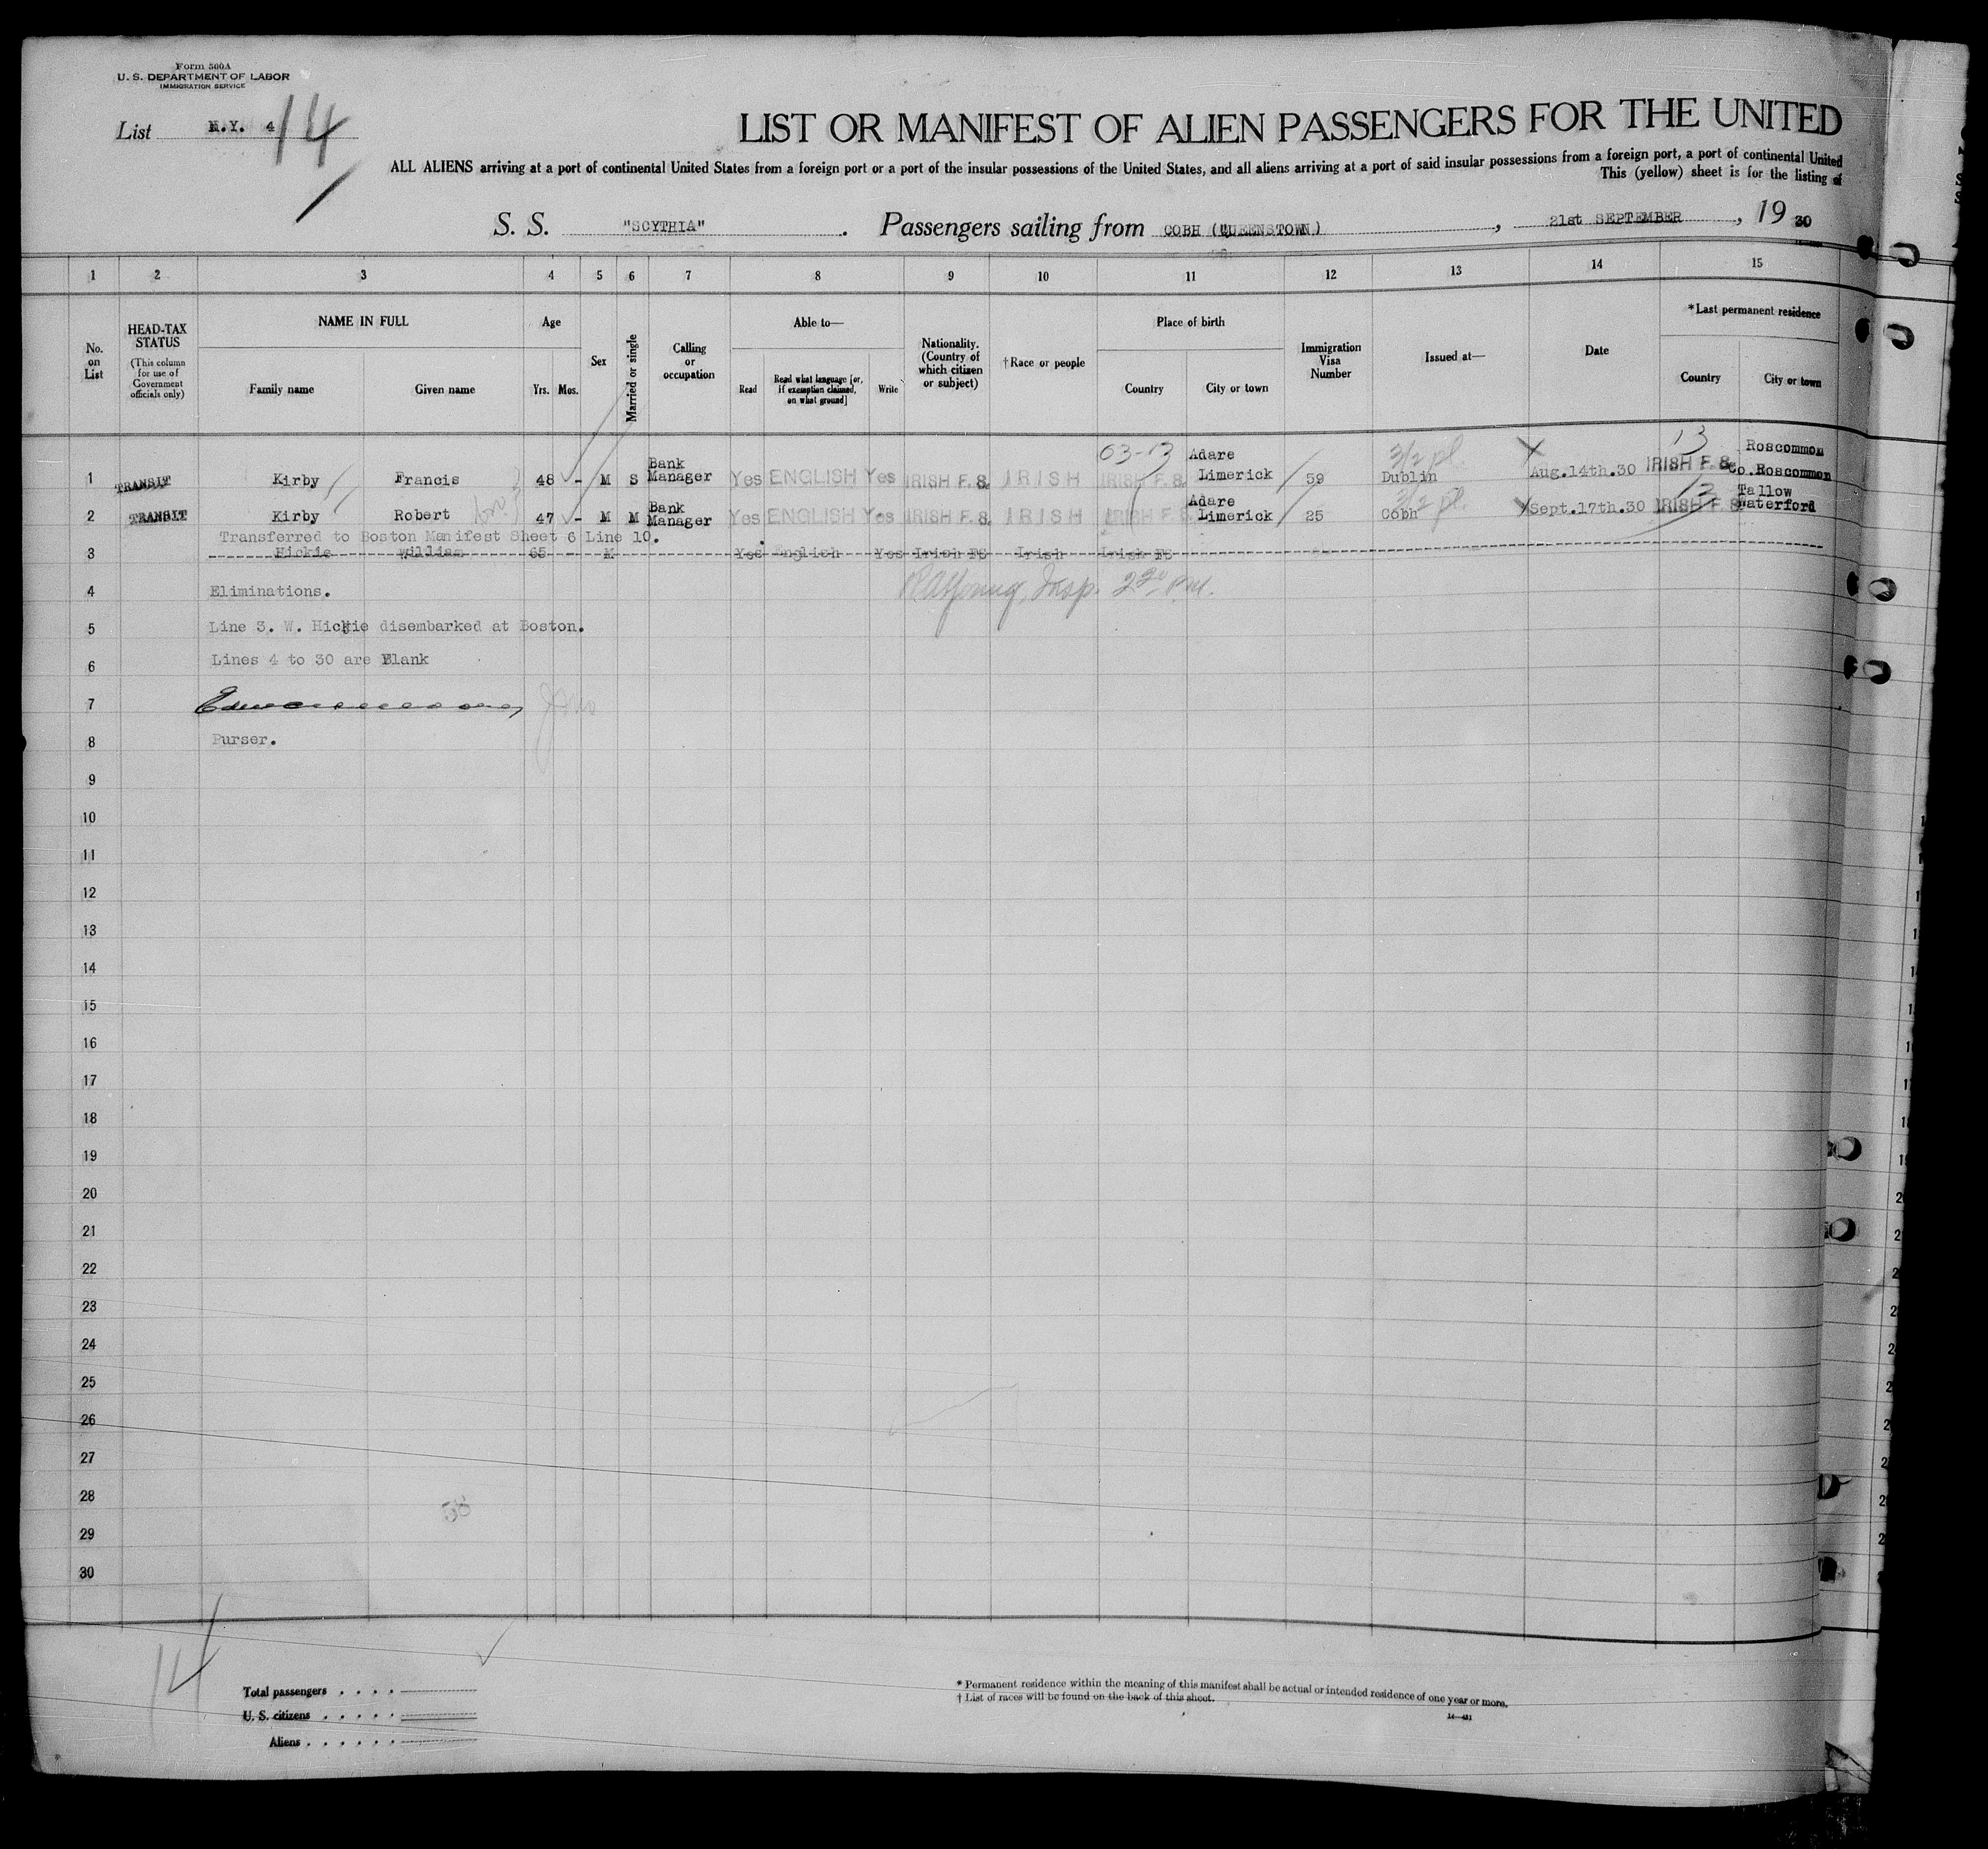 Form 500A
U. S. DEPARTMENT OF LABOR
IMMIGRATION SERVICE
List N.Y. 4 14
LIST OR MANIFEST OF ALIEN PASSENGERS FOR THE UNITED
ALL ALIENS arriving at a port of continental United States from a foreign port or a port of the insular possessions of the United States, and all aliens arriving at a port of said insular possessions from a foreign port, a port of continental United
This (yellow) sheet is for the listing of
S. S. "SCYTHIA". Passengers sailing from COBH (QUEENSTOWN), 21st SEPTEMBER, 19 30
1 2 3 4 5 6 7 8 9 10 11 12 13 14 15
No. on List
HEAD-TAX STATUS
(This column for use of Government officials only)
NAME IN FULL
Family name Given name
Age
Yrs. Mos.
Sex
Married or single
Calling or occupation
Able to—
Read
Read what language [or, if exemption claimed, on what ground]
Write
Nationality. (Country of which citizen or subject)
†Race or people
Place of birth
Country City or town
Immigration Visa Number
Issued at—
Date
*Last permanent residence
Country City or town
03-13 13
1 TRANSIT Kirby Francis 48 - M S Bank Manager Yes ENGLISH Yes IRISH F. S. IRISH IRISH F. S. Adare Limerick 59 Dublin Aug.14th.30 IRISH F. S. Roscommon Co.Roscommon
2 TRANSIT Kirby Robert 47 - M M Bank Manager Yes ENGLISH Yes IRISH F. S. IRISH IRISH F. S. Adare Limerick 25 Cobh Sept.17th.30 IRISH F. S. Tallow Waterford
Transferred to Boston Manifest Sheet 6 Line 10.
3 Hickie William 65 - M Yes English Yes Irish FS Irish Irish FS
4 Eliminations.
Insp. 2 20 P.M.
5 Line 3. W. Hickie disembarked at Boston.
6 Lines 4 to 30 are Blank
7
8 Purser.
9
10
11
12
13
14
15
16
17
18
19
20
21
22
23
24
25
26
27
28
58
29
30
14
Total passengers . . . .
U. S. citizens . . . . .
Aliens . . . . . .
* Permanent residence within the meaning of this manifest shall be actual or intended residence of one year or more.
† List of races will be found on the back of this sheet.
14—431